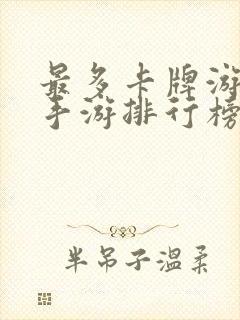 最多卡牌游
手游排行榜
半吊子温柔